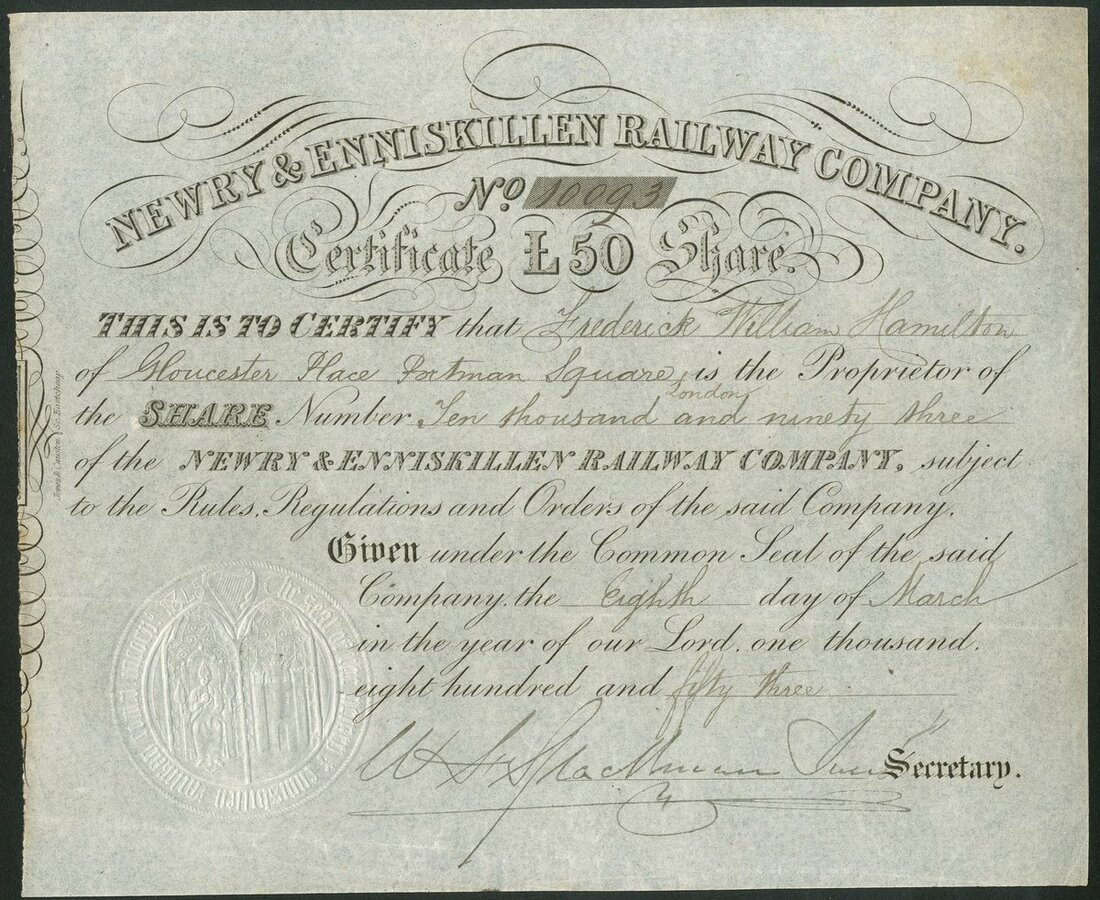 NEWRY & ENNISKILLEN RAILWAY COMPANY.
No. 10093
Certificate £50 Share.
THIS IS TO CERTIFY that Frederick William Hamilton
of Gloucester Place Portman Square, is the Proprietor of
London
the SHARE Number Ten thousand and ninety three
of the NEWRY & ENNISKILLEN RAILWAY COMPANY, subject
to the Rules, Regulations and Orders of the said Company.
Given under the Common Seal of the said
Company, the Eighth day of March
in the year of our Lord, one thousand,
eight hundred and fifty three
Secretary.
the seal of
1845